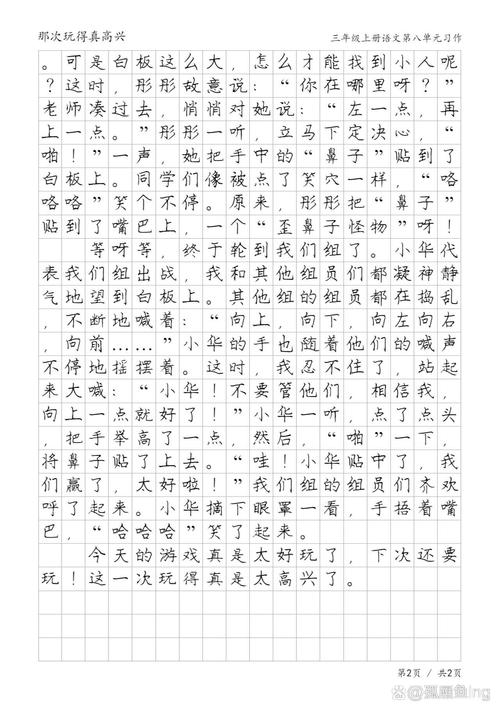 那次玩得真高兴
三年级上册语文第八单元习作
。可是白板这么大，怎么才能找到小人呢
？这时，彤彤故意说：“你在哪里呀？”
老师凑过去，悄悄对她说：“左一点，再
上一点。”彤彤一听，立马下定决心，“
啪！”一声，她把手中的“鼻子”贴到了
白板上。同学们像被点了笑穴一样，“咯
咯咯”笑个不停。原来，彤彤把“鼻子”
贴到了嘴巴上，一个“歪鼻子怪物”呀！
等呀等，终于轮到我们组了。小华代
表我们组出战，我和其他组员们都凝神静
气地望到白板上。其他组的组员都在捣乱
，不断地喊着：“向上，向下，向左向右
，向前……”小华的手也随着他们的喊声
不停地摇摆着。这时，我忍不住了，站起
来大喊：“小华！不要管他们，相信我，
向上一点就好了！”小华一听，点了点头
，把手举高了一点，然后，“啪”一下，
将鼻子贴了上去。“哇！小华贴中了，我
们赢了，太好啦！”我们组的组员们齐欢
呼了起来。小华摘下眼罩一看，手捂着嘴
巴，“哈哈哈”笑了起来。
今天的游戏真是太好玩了，下次还要
玩！这一次玩得真是太高兴了。
第2页 / 共2页
Bai百度 @孤雁鱼ing